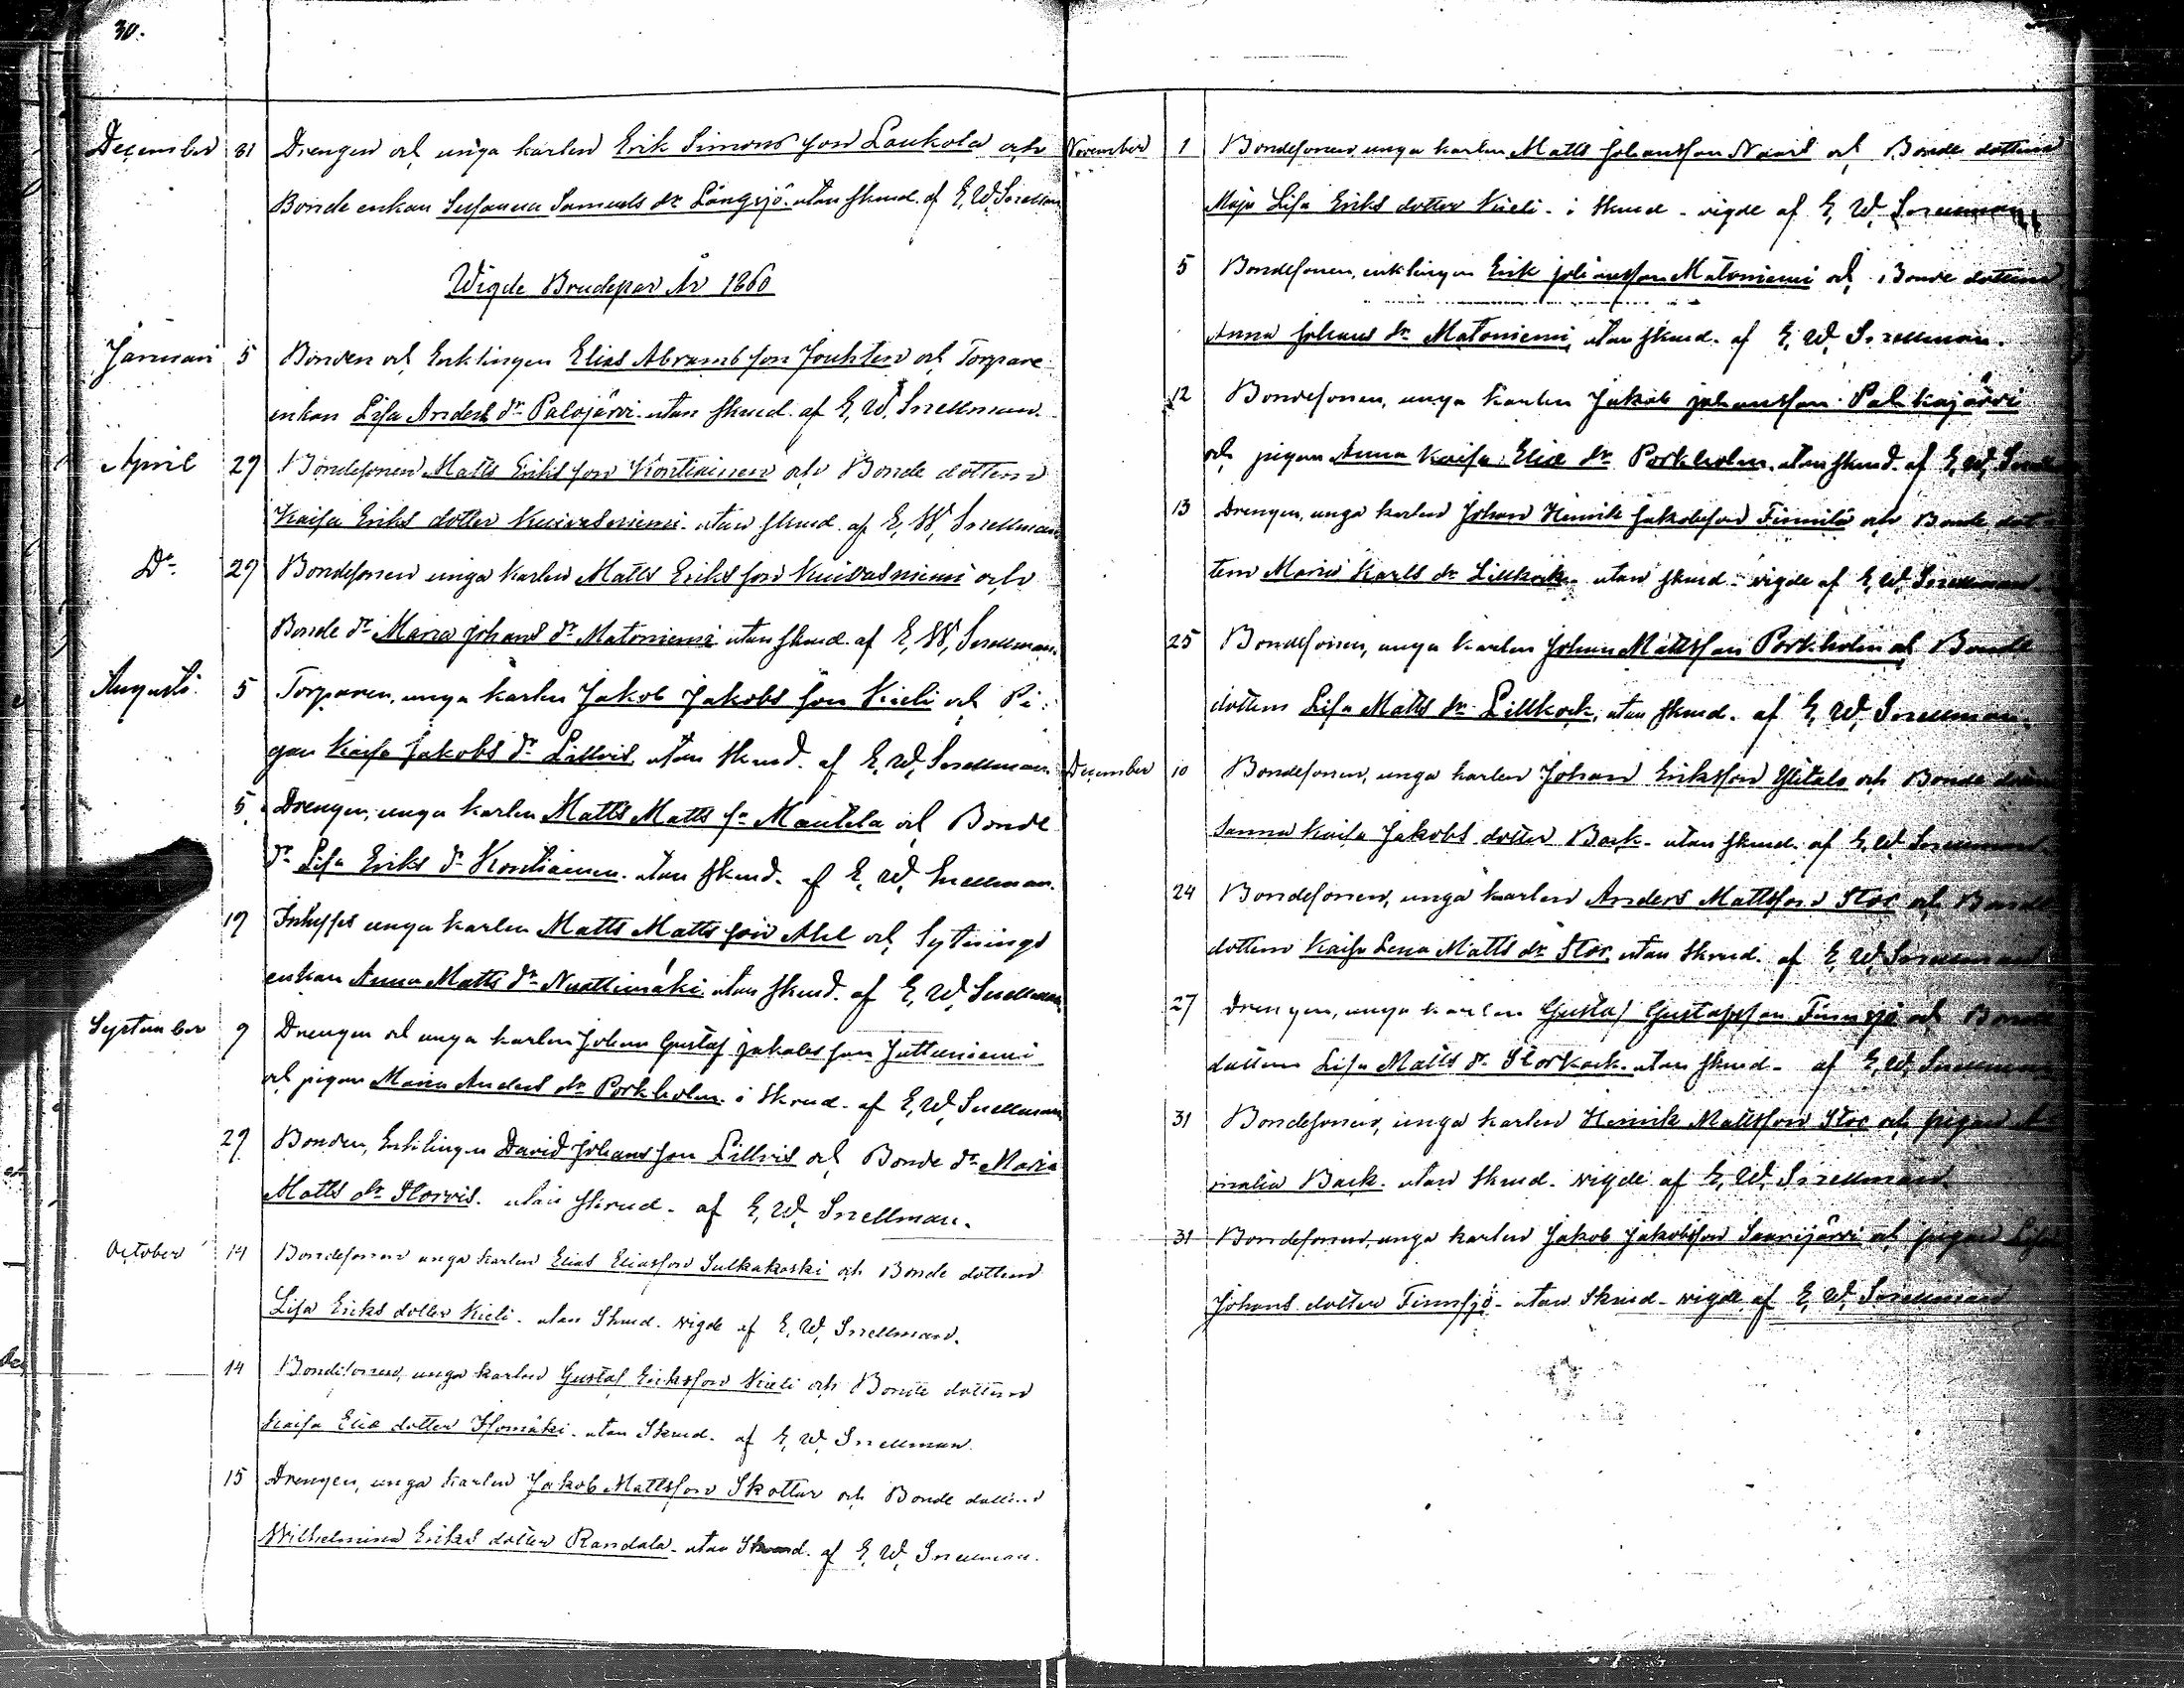 30.
December 31 Drengen och unga karlen Erik Simons son Laukola och
Bonde enkan Susanna Samuels dr Långsjö utan skrud. af E, W, Snellman
Wigde Brudepar År 1860
Januari 5 Bonden och Enklingen Elias Abrams son Jouhten och Torpare
enkan Lisa Anders dr Palojärvi utan skrud. af E, W, Snellman.
April 29 Bondesonen Matts Eriks son Kontiainen och Bonde dottern
Kaisa Eriks dotter Kuivasniemi utan skrud. af E, W, Snellman
Do 29 Bondesonen unga karlen Matts Eriks son Kuivasniemi och
Bonde dr Maria Johans dr Matoniemi utan skrud. af E, W, Snellman.
Augusti 5 Torparen, unga karlen Jakob Jakobs son Kieli och Pi-
gan Kaisa Jakobs dr Lillvis utan skrud. af E, W, Snellman
5 Drengen, unga karlen Matts Matts sn Mantila och Bonde
dr Lisa Eriks dr Kontiainen. utan skrud. af E, W, Snellman.
19 Inhyses unga karlen Matts Matts son Ahl och Sytnings
enkan Anna Matts dr utan skrud. af E, W, Snellman
September 9 Drengen och unga karlen Johan Gustaf Jakobs son Juttuniemi
och pigan Maria Anders dr Porkholm i skrud. af E, W, Snellman
29 Bonden, Enklingen David Johans son Lillvis och Bonde dr Maria
Matts dr Storvis. utan skrud. af E, W, Snellman.
October 14 Bondesonen unga karlen Elias Eliasson Sulkakoski och Bonde dottern
Lisa Eriks dotter Kieli. utan Skrud. vigde af E, W, Snellman.
14 Bondesonen, unga karlen Gustaf Eriksson Kieli och Bonde dottern
Kaisa Eliæ dotter utan Skrud. af E, W, Snellman.
15 Drengen, unga karlen Jakob Mattsson Skottar och Bonde dottern
Wilhelmina Eriks dotter Randala. utan Skrud. af E, W, Snellman.
November 1 Bondesonen unga karlen Matts Johansson och Bonde dottern
Maja Lisa Eriks dotter Kieli. i Skrud. vigde af E, W, Snellman
5 Bondesonen, enklingen Erik Johansson Matoniemi och Bonde dottern
Anna Johans dr Matoniemi, utan skrud. af E, W, Snellman.
12 Bondesonen, unga karlen Jakob Johansson Palikajärvi
och pigan Anna Kaisa Eliæ dr Porkholm. utan skrud. af E, W, Snell
13 Drengen, unga karlen Johan Henrik Jakobsson Finnilä och Bonde dot-
tern Maria Karls dr Lillkock. utan skrud. vigde af E, W, Snellman.
25 Bondesonen, unga karlen Johan Mattsson Porkholm och Bonde
dottern Lisa Matts dr Lillkock, utan skrud. af E, W, Snellman.
December 10 Bondesonen, unga karlen Johan Eriksson Ylitalo och Bonde dottern
Sanna Kaisa Jakobs dotter Back. utan skrud. af E, W, Snellman
24 Bondesonen, unga karlen Anders Mattsson Stor och Bonde
dottern Kaisa Lena Matts dr Stor, utan skrud. af E, W, Snellman
27 Drengen, unga karlen Gustaf Gustafsson Finnsjö och Bonde
dottern Lisa Matts dr Storkock. utan skrud. af E, W, Snellman
31 Bondesonen, unga karlen Henrik Mattsson Stor och pigan A
malia Back. utan skrud. vigde af E, W, Snellman.
31 Bondesonen, unga karlen Jakob Jakobsson Saarijärvi och pigan Lisa
Johans dotter Finnsjö. utan Skrud. vigde af E, W, Snellman